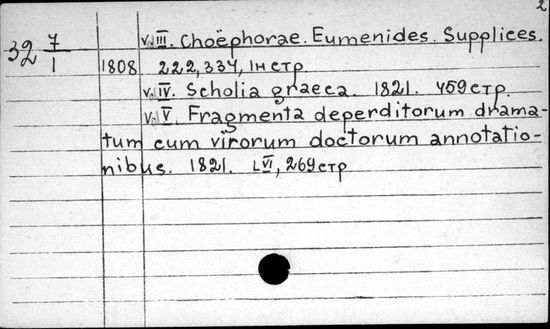 2
v. III. Choëphorae. Eumenides. Supplices.
32 7/1
1808 222, 334, 1н стр
v. IV. Scholia graeca. 1821. 459 стр.
v. V. Fragmenta deperditorum drama-
tum cum virorum doctorum annotatio-
nibus. 1821. LVI, 269 стр